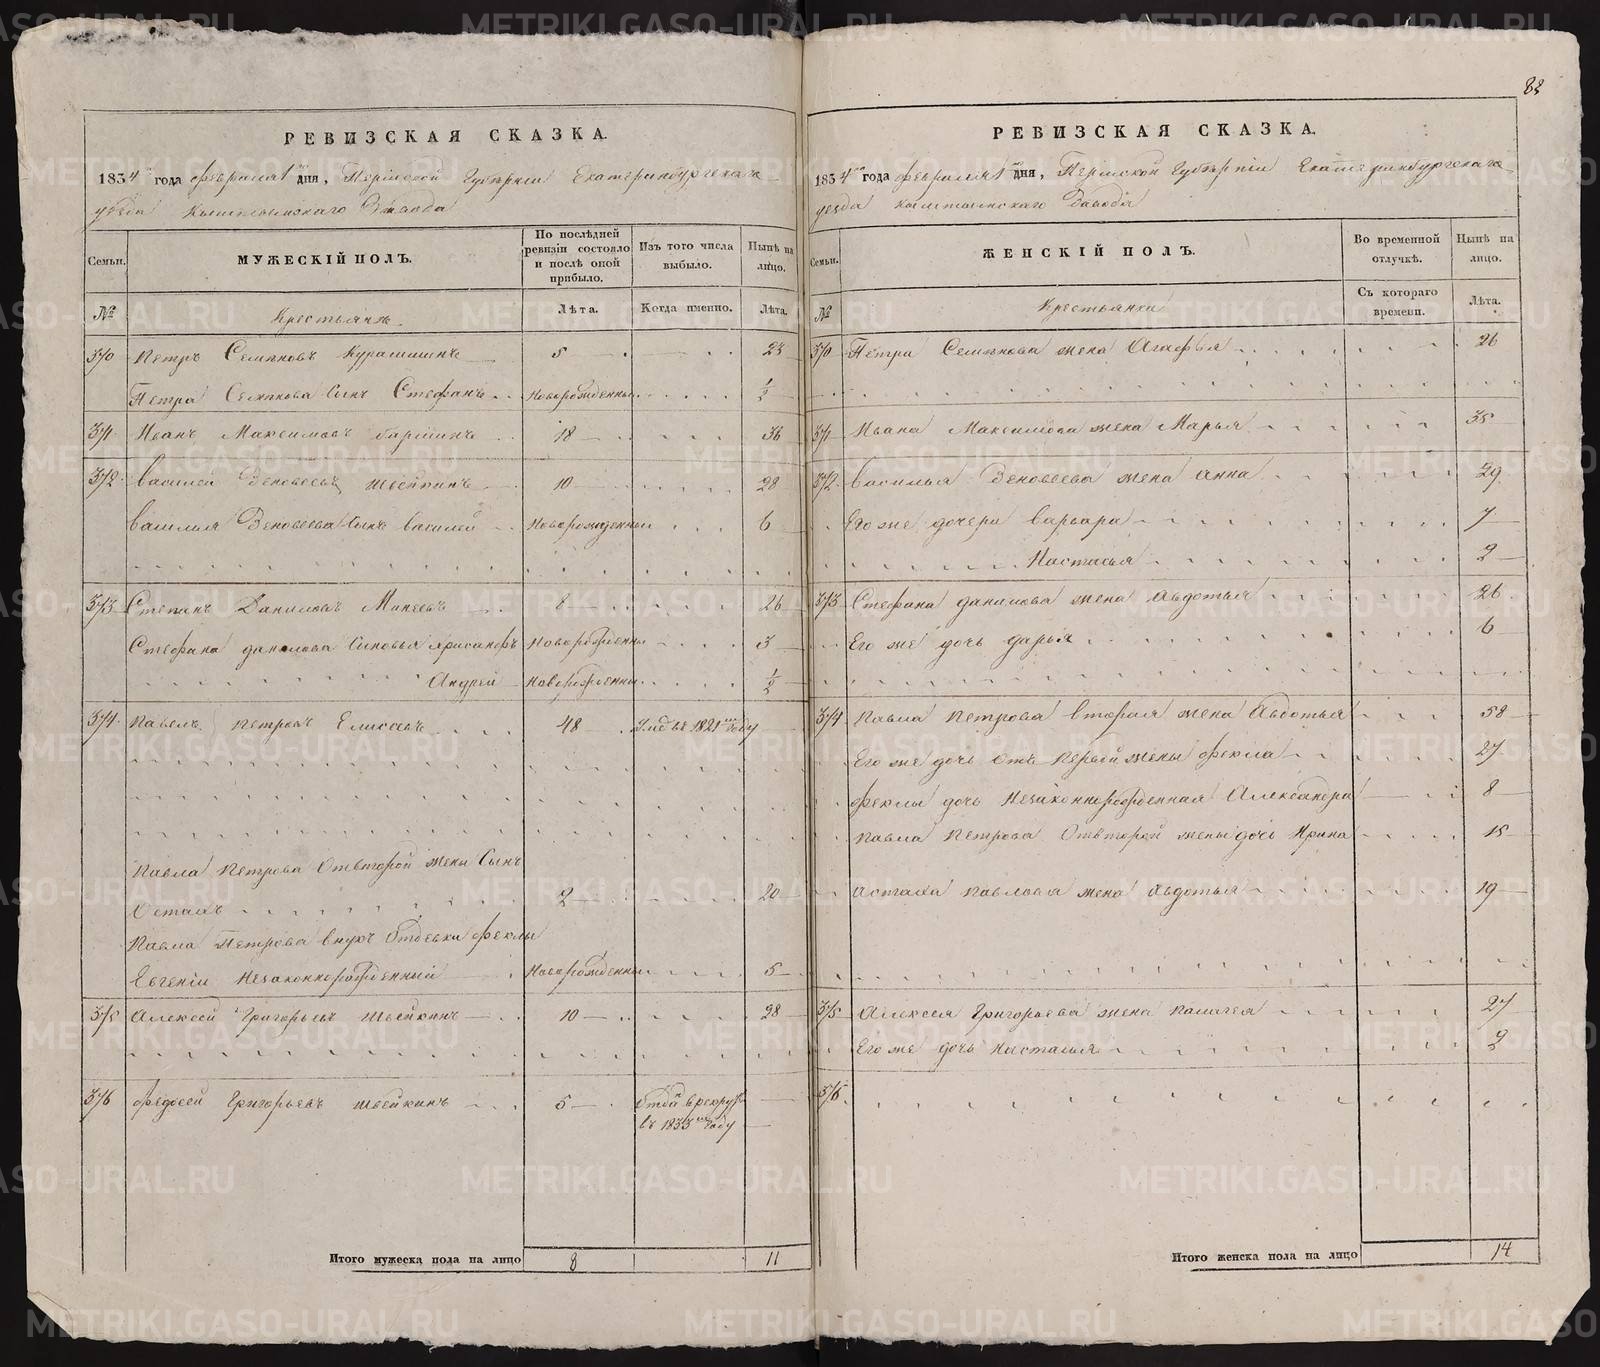 88
РЕВИЗСКАЯ СКАЗКА.
1834 го года февраля 1 дня, Пермской Губернии Екатеринбургскаго
уезда Кыштымскаго Завода
Семьи.
МУЖЕСКІЙ ПОЛЪ.
По послѣдней ревизіи состояло и послѣ оной прибыло.
Изъ того числа выбыло.
Нынѣ на лицо.
№
Крестьяне.
Лѣта.
Когда именно.
Лѣта.
370 Петръ Семеновъ 5 23
Петра Семенова Сынъ Стефанъ Новорожденный 1/2
371 Иванъ Максимовъ 18 36
372 Василей Зеновеевъ Швейкинъ 10 28
Василья Зеновеева Сынъ Василей Новорожденный 6
373 Степанъ Даниловъ Мокеевъ 8 26
Стефана данилова Сыновья Новорожденный 3
Андрей Новорожденный 1/2
374 Павелъ Петровъ Елисеевъ 48 Умре въ 1821 м Году
Павла Петрова Отвторой жены Сынъ
Остахъ 2 20
Павла Петрова внукъ Отдевки феклы
Евгеній Незаконнорожденный Новорожденный 5
375 Алексей Григорьевъ Швейкинъ 10 28
376 федосей Григорьевъ Швейкинъ 5 Отдан в рекруты
въ 1833 м Году
Итого мужеска пола на лицо 8 11
РЕВИЗСКАЯ СКАЗКА.
1834 го года февраля 1 дня, Пермской Губерніи Екатеринбургскаго
уезда Кыштымскаго Завода
Семьи.
ЖЕНСКІЙ ПОЛЪ.
Во временной отлучкѣ.
Нынѣ на лицо.
№
Крестьянки
Съ котораго времени.
Лѣта.
370 Петра Семенова жена Агафья 26
371 Ивана Максимова жена Марья 35
372 Василья Зеновеева жена Анна 29
Его же дочери Варвара 7
Настасья 2
373 Стефана данилова жена Авдотья 26
Его же дочь дарья 6
374 Павла Петрова вторая жена Авдотья 58
Его же дочь Отъ Первой жены фекла 27
феклы дочь Незаконнорожденная Александра 8
Павла Петрова Отвторой жены дочь Ирина 15
Астаха Павлова жена Авдотья 19
375 Алексея Григорьева жена Палагея 27
Его же дочь Настасья 2
376
Итого женска пола на лицо 14
METRIKI.GASO-URAL.RU